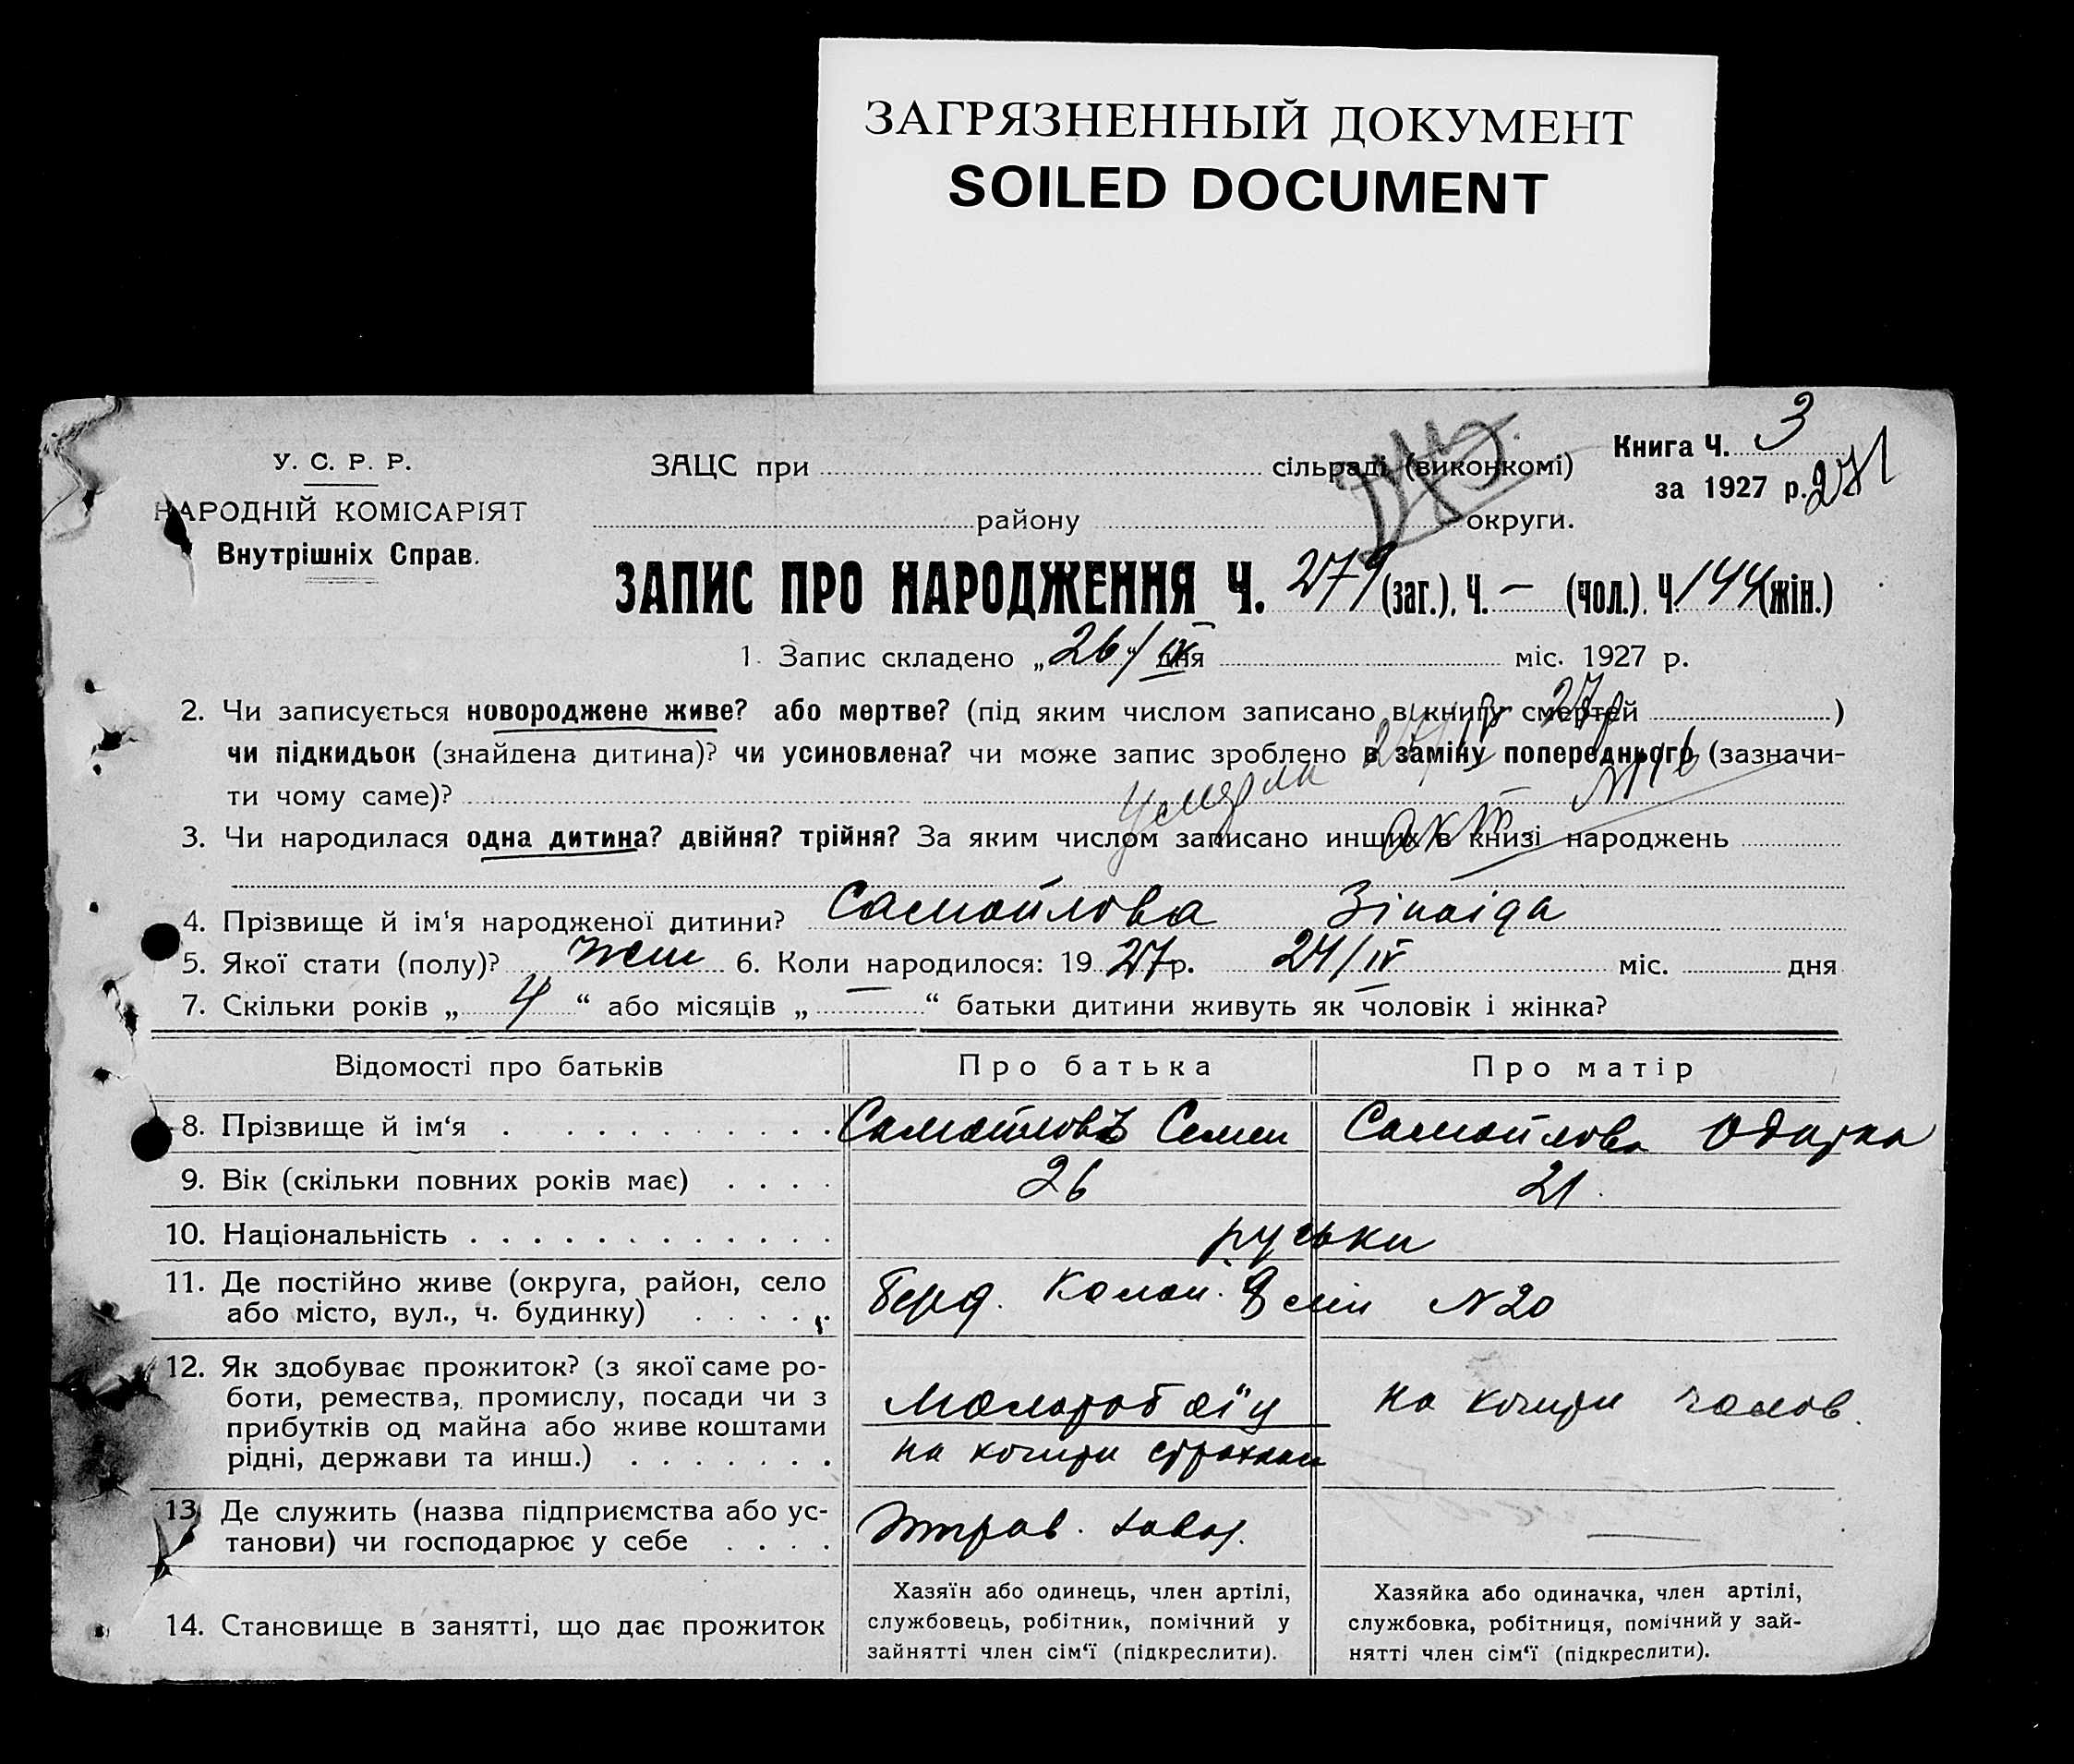 ЗАГРЯЗНЕННЫЙ ДОКУМЕНТ
SOILED DOCUMENT
У. С. Р. Р.
НАРОДНІЙ КОМІСАРІЯТ
Внутрішніх Справ.
ЗАЦС при сільраді (виконкомі)
району округи.
Книга Ч. 3
за 1927 р. 271
ЗАПИС ПРО НАРОДЖЕННЯ Ч. 271 (заг.), Ч. — (чол.), Ч. 144 (жін.)
1. Запис складено „26/IV“ дня міс. 1927 р.
2. Чи записується новороджене живе? або мертве? (під яким числом записано в книгу смертей )
чи підкидьок (знайдена дитина)? чи усиновлена? чи може запис зроблено в заміну попереднього (зазначи-
ти чому саме)?
3. Чи народилася одна дитина? двійня? трійня? За яким числом записано инших в книзі народжень
4. Прізвище й ім'я народженої дитини? Самойлова Зінаіда
5. Якої стати (полу)? жен 6. Коли народилося: 1927 р. 24/IV міс. дня
7. Скільки років „ 4 “ або місяців „ — “ батьки дитини живуть як чоловік і жінка?
Відомості про батьків Про батька Про матір
8. Прізвище й ім'я Самойловъ Семен Самойлова Одарка
9. Вік (скільки повних років має) 26 21
10. Національність руськи
11. Де постійно живе (округа, район, село
або місто, вул., ч. будинку) Берд. Колон. 8 лін N 20
12. Як здобуває прожиток? (з якої саме ро-
боти, ремества, промислу, посади чи з
прибутків од майна або живе коштами
рідні, держави та инш.)
на кошти
на кошти чолов.
13. Де служить (назва підприємства або ус-
танови) чи господарює у себе —
14. Становище в занятті, що дає прожиток
Хазяїн або одинець, член артілі,
службовець, робітник, помічний у
зайнятті член сім'ї (підкреслити).
Хазяйка або одиначка, член артілі,
службовка, робітниця, помічний у зай-
нятті член сім'ї (підкреслити).